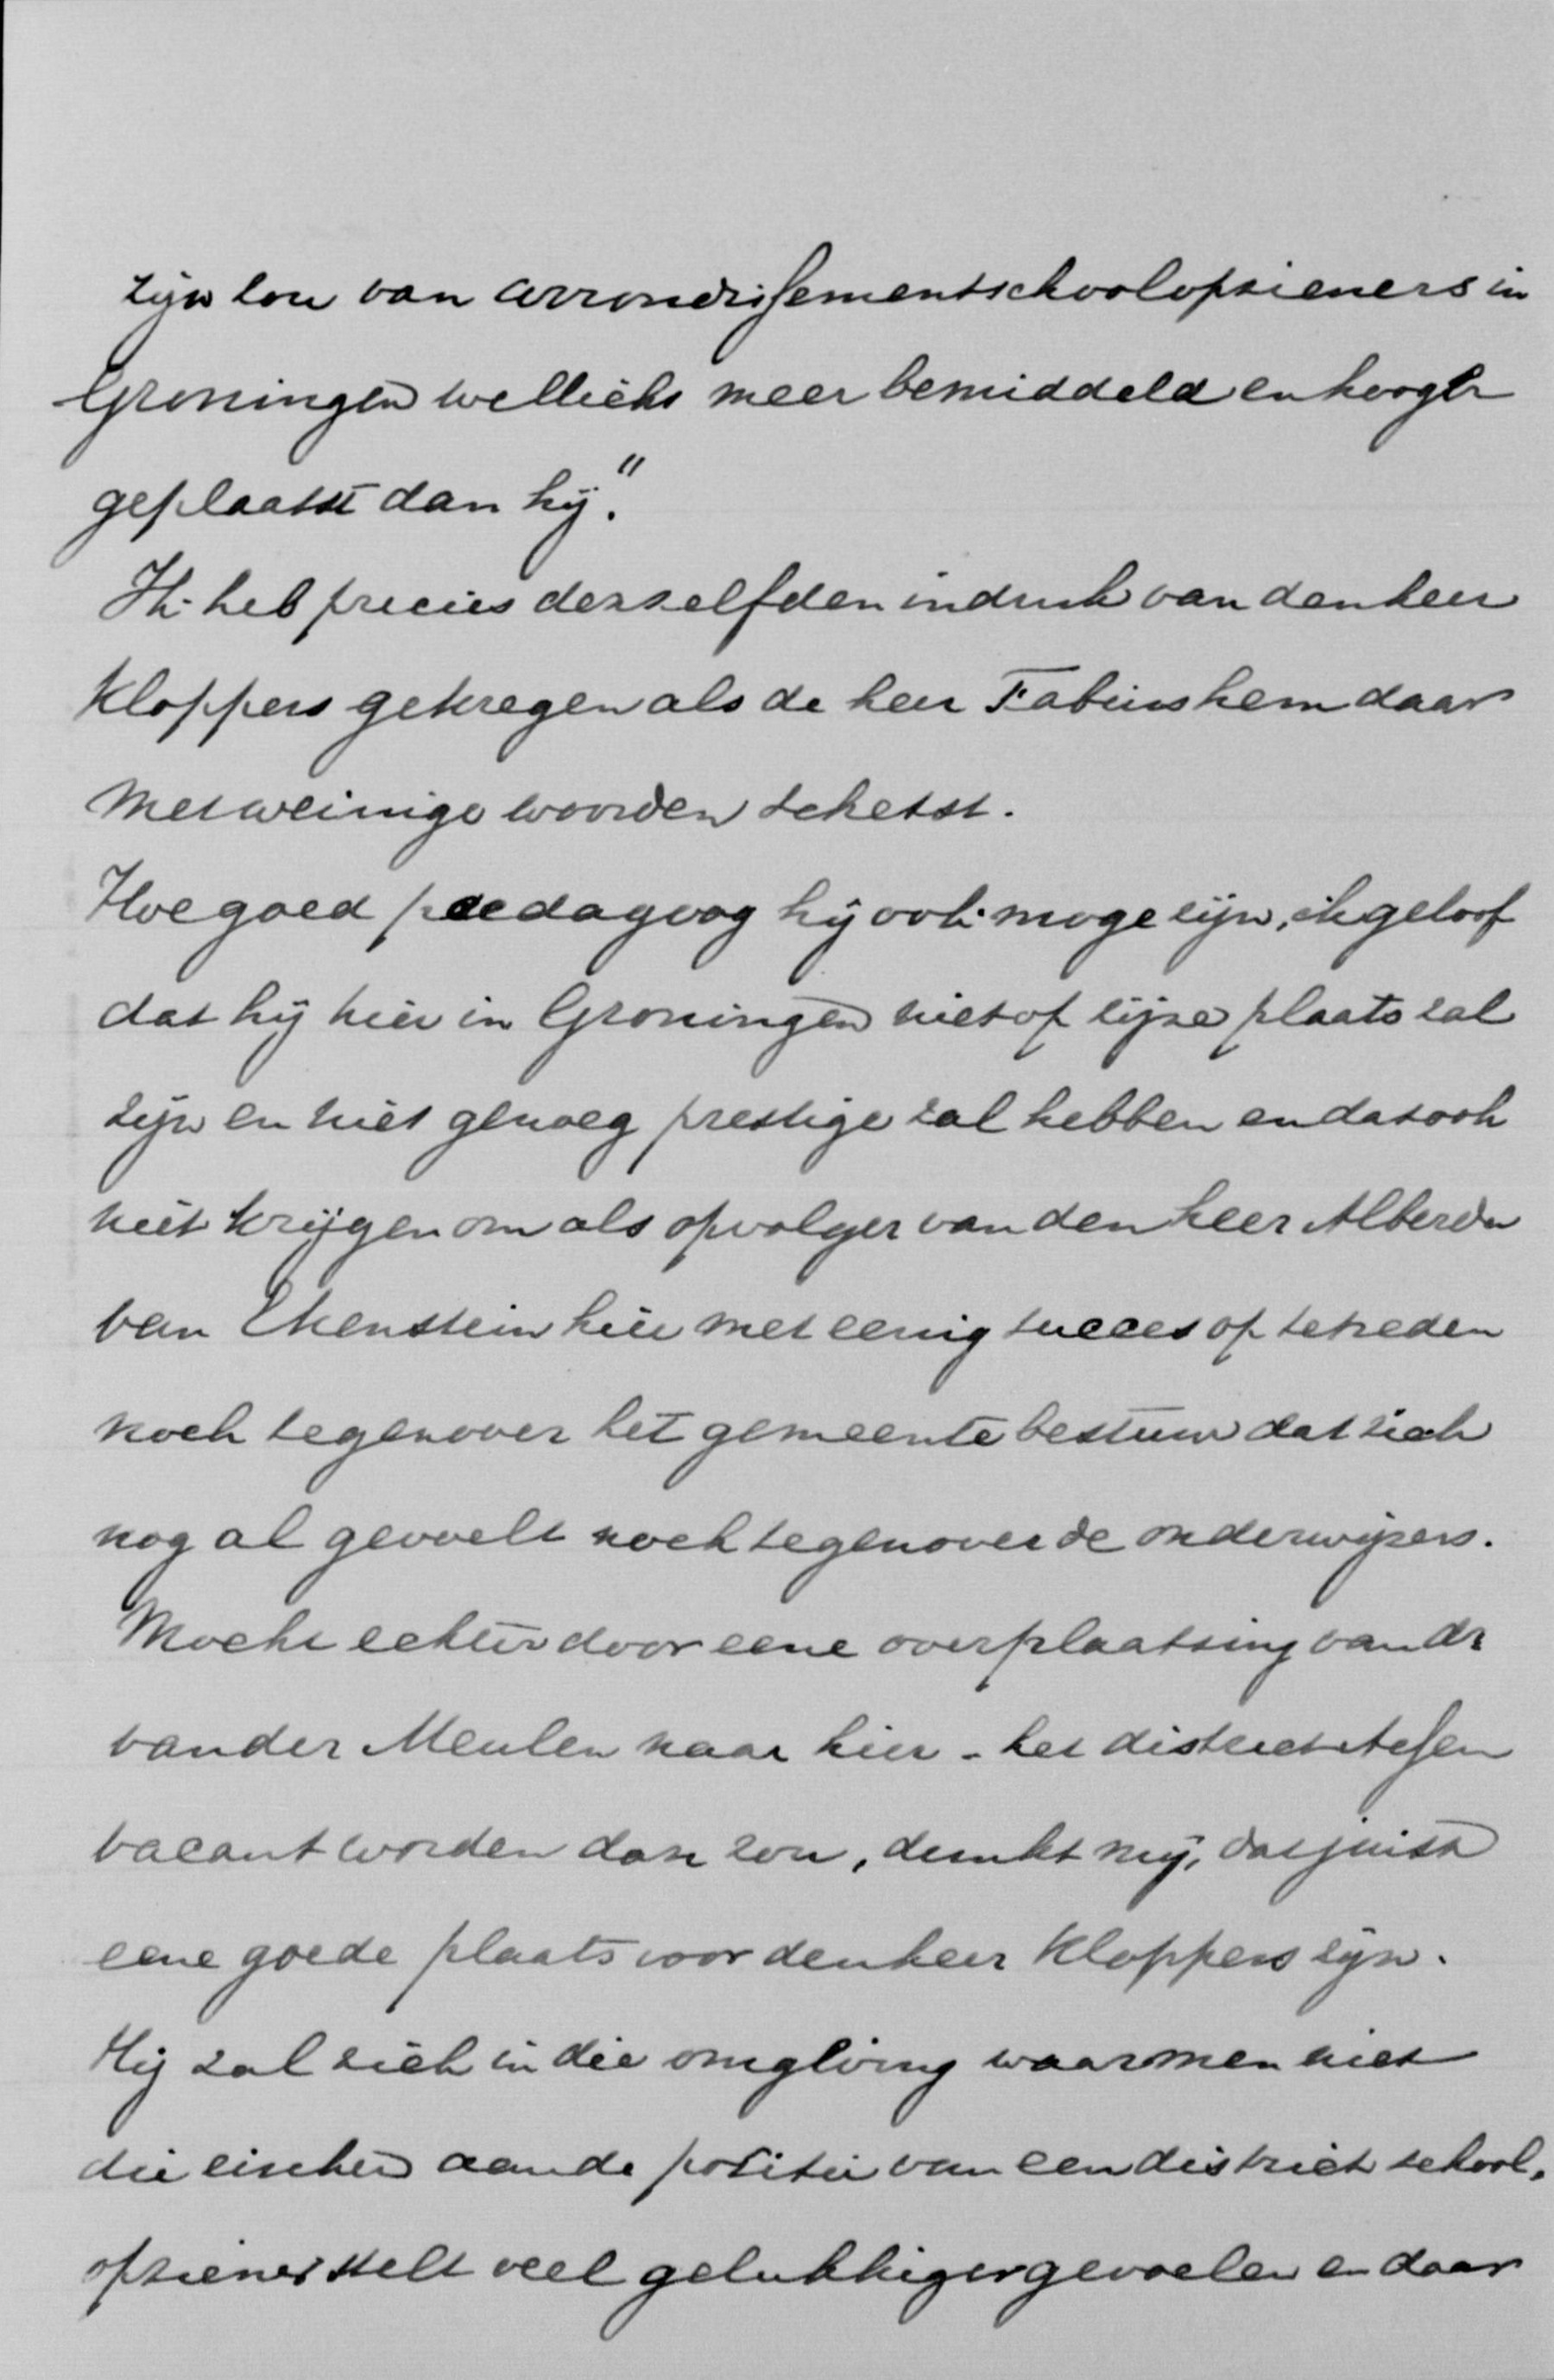 zijn tou van arrondissementschoolopzieners in
Groningen wellicht meer bemiddeld en hooger
geplaatst dan hij."
Ik heb precies denzelfden indruk van den heer
Kloppers gekregen als de heer Fabius hem daar
met weinige woorden schetst.
Hoe goed paedagoog hij ook moge zijn, ik geloof
dat hij hier in Groningen niet op zijne plaats zal
zijn en niet genoeg prestige zal hebben en dat ook
niet krijgen om als opvolger van den heer Alberda
van Ekenstein hier met eenig succes op te treden
noch tegenover het gemeentebestuur dat zich
nog al gevoelt noch tegenover de onderwijzers.
Mocht echter door eene overplaatsing van dr
van der Meulen naar hier - het district Assen
vacant worden dan zou, dunkt mij, dat juist
eene goede plaats voor den heer Kloppers zijn.
Hij zal zich in die omgeving waar men niet
die eischen aan de positie van een district school-
opziener stelt veel gelukkiger gevoelen en daar